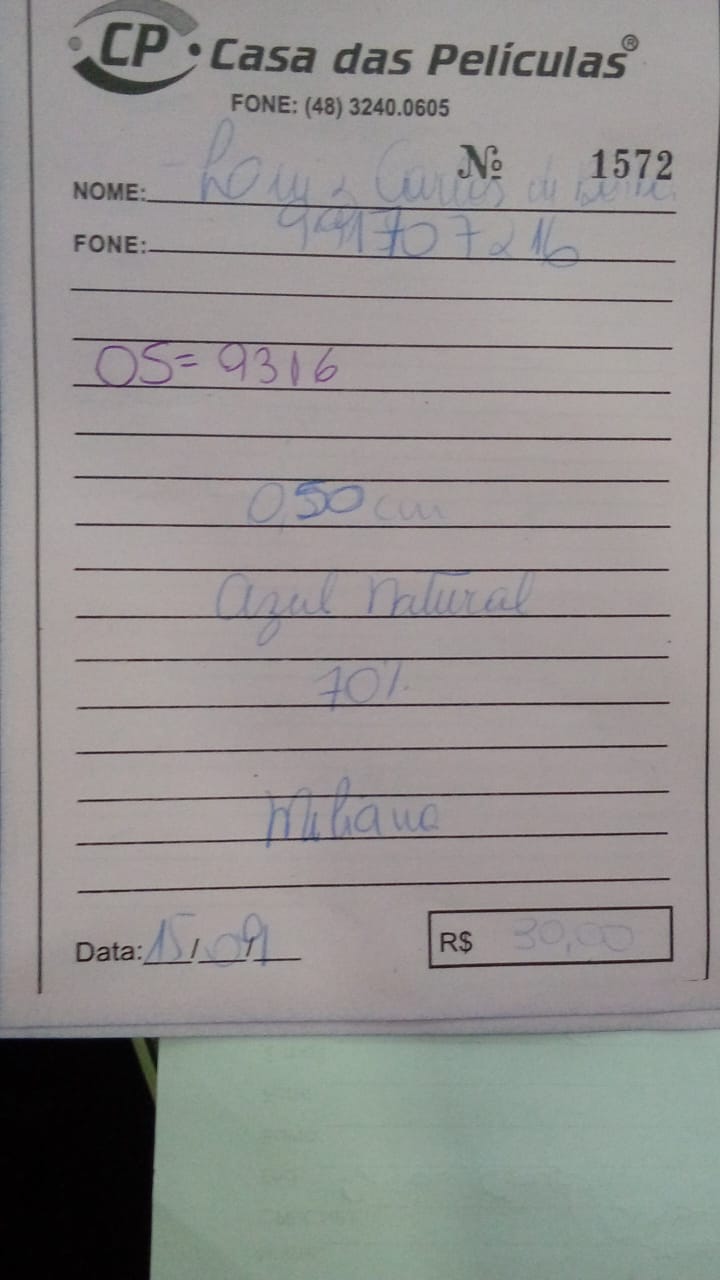 CP • Casa das Películas®
FONE: (48) 3240.0605
Nº 1572
NOME: Carlos de
FONE: 991707216
OS= 9316
0,50 cm
Azul Natural
70%
Data: 15/09/
R$ 30,00